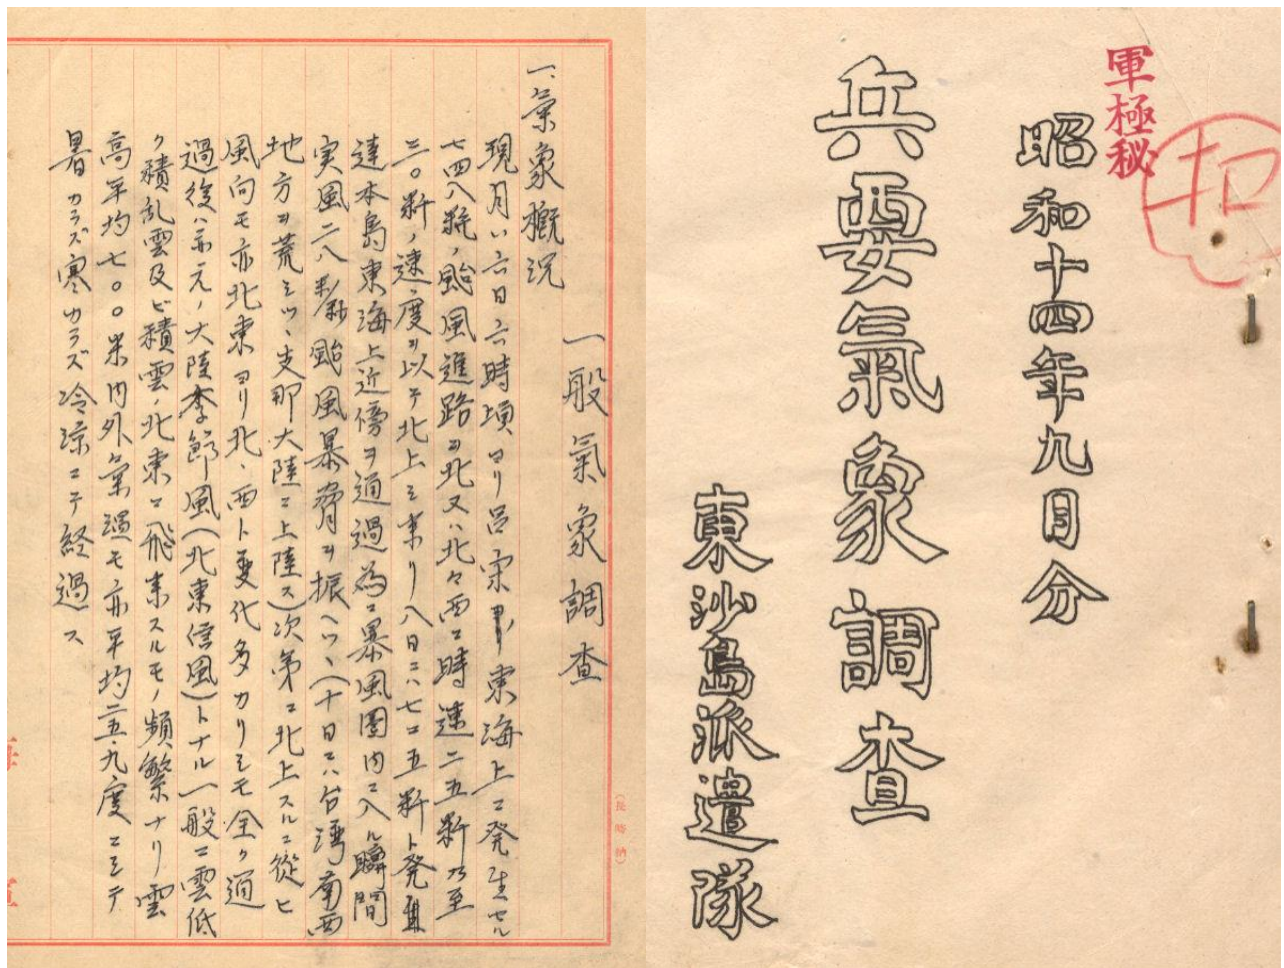 軍極秘
昭和十四年九月分
兵要氣象調査
東沙島派遣隊
一般氣象調査
一、氣象概況
現月ハ六日六時頃ヨリ呂宋東海上ニ発生セル
七四八粍ノ颱風進路ヲ北又ハ北々西ニ時速二五粁乃至
三〇粁ノ速度ヲ以テ北上シ来リ八日ニハ七二五粁ト発達
達本島東海上近傍ヲ通過為ニ暴風圏内ニ入ル瞬間
実風二八米颱風暴脅ヲ振ヘツヽ(十日ニハ台湾南西
地方ヲ荒シツヽ支那大陸ニ上陸ス)次第ニ北上スルニ從ヒ
風向モ亦北東ヨリ北、西ト変化多カリシモ全ク通
過後ハ亦元ノ大陸季節風(北東信風)トナル一般ニ雲低
ク積乱雲及ビ積雲ノ北東ニ飛来スルモノ頻繁ナリ雲
高平均七〇〇米内外氣温モ亦平均二五.九度ニシテ
暑カラズ寒カラズ冷涼ニテ経過ス